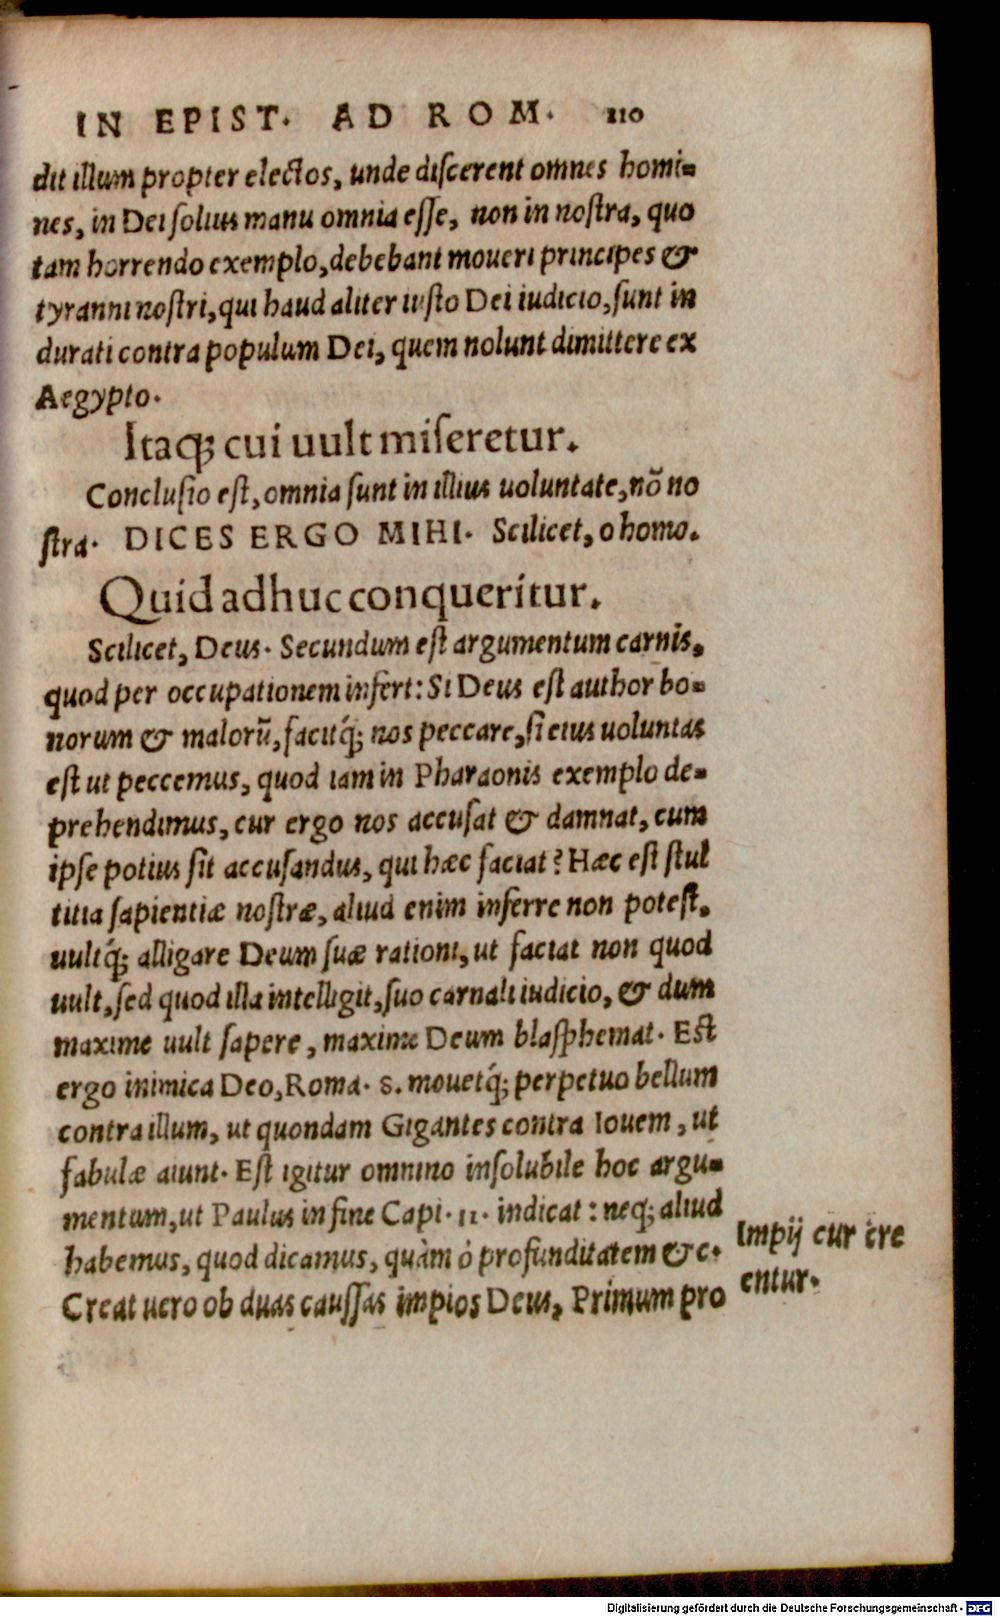 IN EPIST. AD ROM. 110
dit illum propter electos, unde discerent omnes homi-
nes, in Dei solius manu omnia esse, non in nostra, quo
tam horrendo exemplo, debebant moueri principes &
tyranni nostri, qui haud aliter iusto Dei iudicio, sunt in
durati contra populum Dei, quem nolunt dimittere ex
Aegypto.
Itaq; cui uult miseretur.
Conclusio est, omnia sunt in illius uoluntate, nõ no
stra. DICES ERGO MIHI. Scilicet, o homo.
Quid adhuc conqueritur.
Scilicet, Deus. Secundum est argumentum carnis,
quod per occupationem infert: Si Deus est author bo-
norum & malorũ, facitq́; nos peccare, si eius uoluntas
est ut peccemus, quod iam in Pharaonis exemplo de-
prehendimus, cur ergo nos accusat & damnat, cum
ipse potius sit accusandus, qui hæc faciat? Hæc est stul
titia sapientiæ nostræ, aliud enim inferre non potest,
uultq́; alligare Deum suæ rationi, ut faciat non quod
uult, sed quod illa intelligit, suo carnali iudicio, & dum
maxime uult sapere, maxime Deum blasphemat. Est
ergo inimica Deo, Roma. 8. mouetq́; perpetuo bellum
contra illum, ut quondam Gigantes contra Iouem, ut
fabulæ aiunt. Est igitur omnino insolubile hoc argu-
mentum, ut Paulus in fine Capi. 11. indicat: neq; aliud
habemus, quod dicamus, quàm ò profunditatem &c.
Creat uero ob duas caussas impios Deus, Primum pro
Impij cur cre
entur.
Digitalisierung gefördert durch die Deutsche Forschungsgemeinschaft - DFG